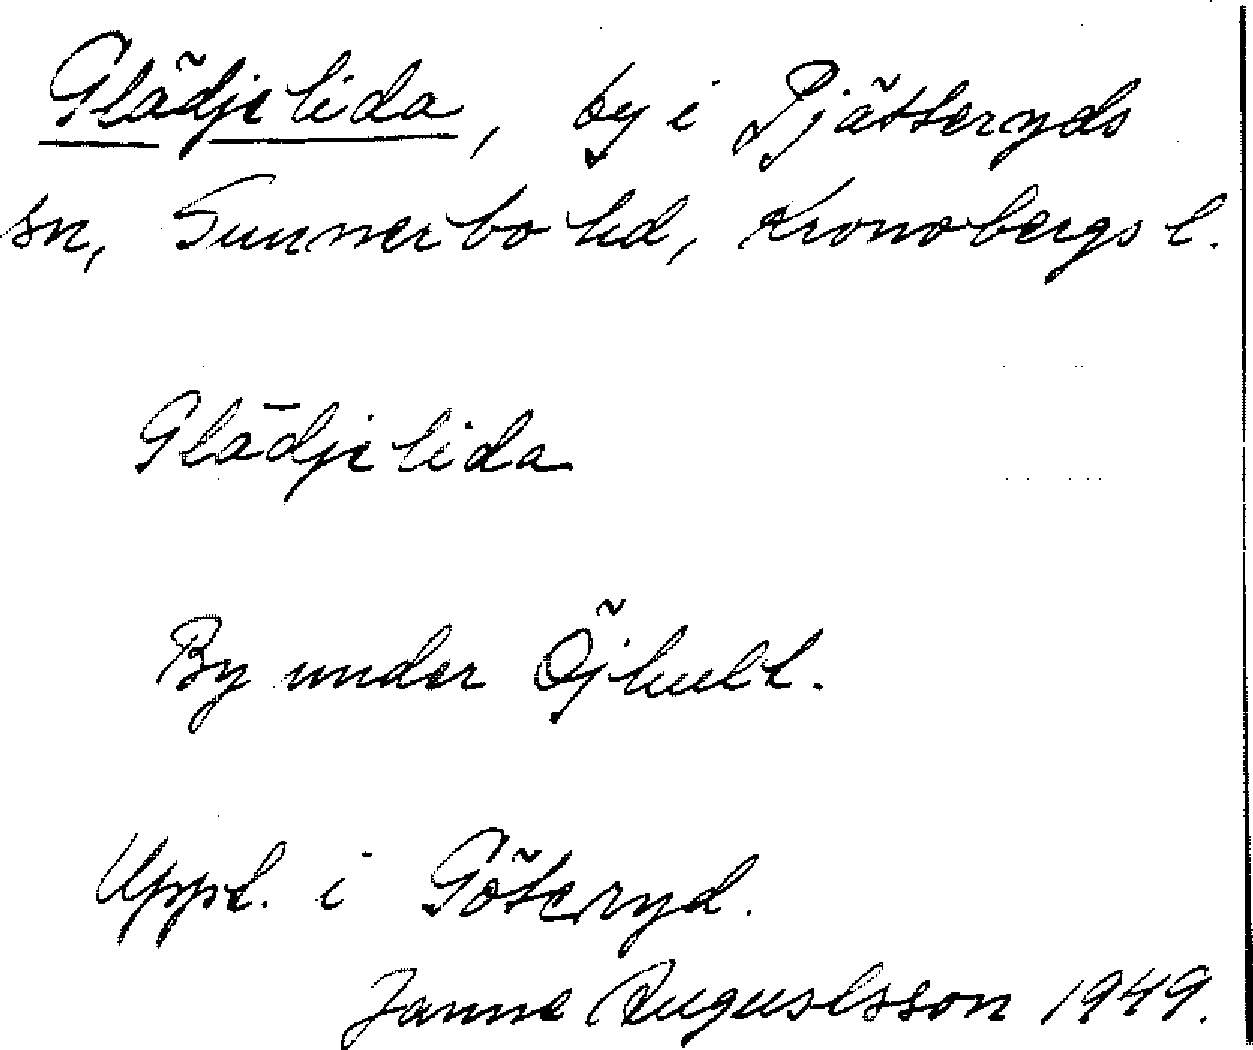 Glädjelida, by i Pjätteryds
sn, Sunnerbo hd, Kronobergs l.
Glädjelida
By under Öjhult.
Uppt. i Göteryd.
Janne Augustsson 1949.